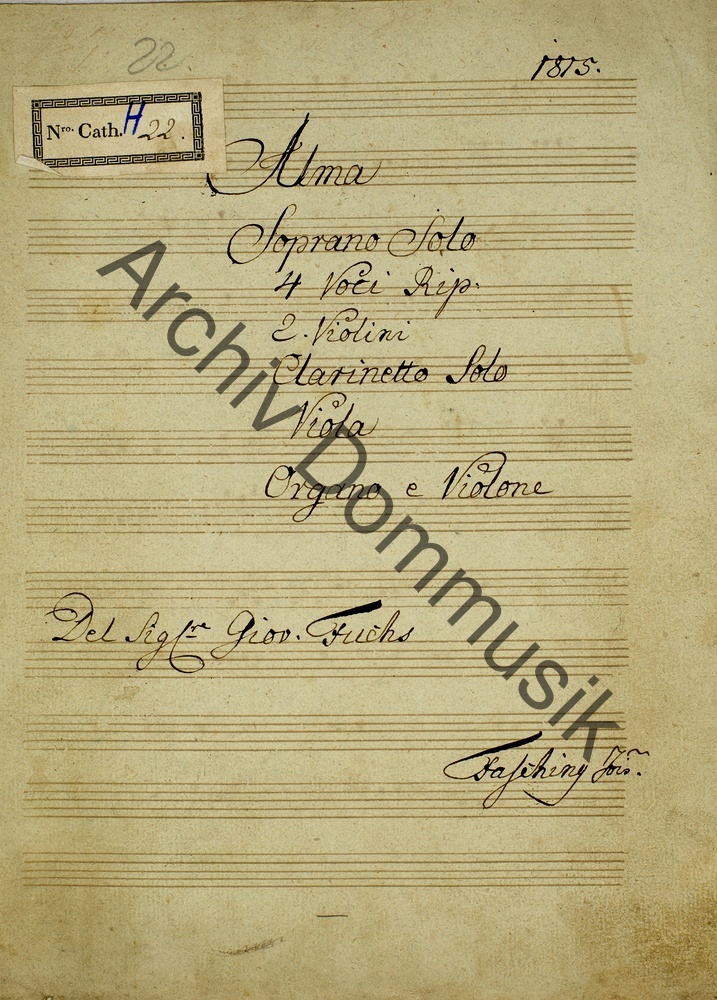 22.
1815.
Nro. Cath. H 22.
Alma
Soprano Solo
4 Voci Rip.
2. Violini
Clarinetto Solo
Viola
Organo e Violone
Del Sigre Giov. Fuchs
Fasching
Archiv Dommusik